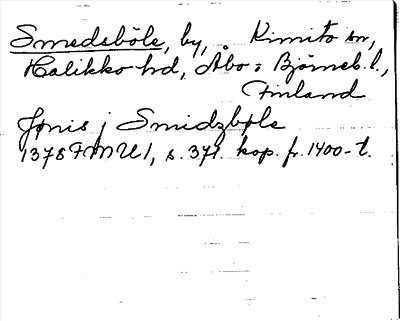 Smedsböle, by, Kimito sn,
Halikko hd, Åbo o Björneb. l.,
Finland
Jønis j Smidzbøle
1378 FMU 1, s. 371. kop. fr. 1400-t.